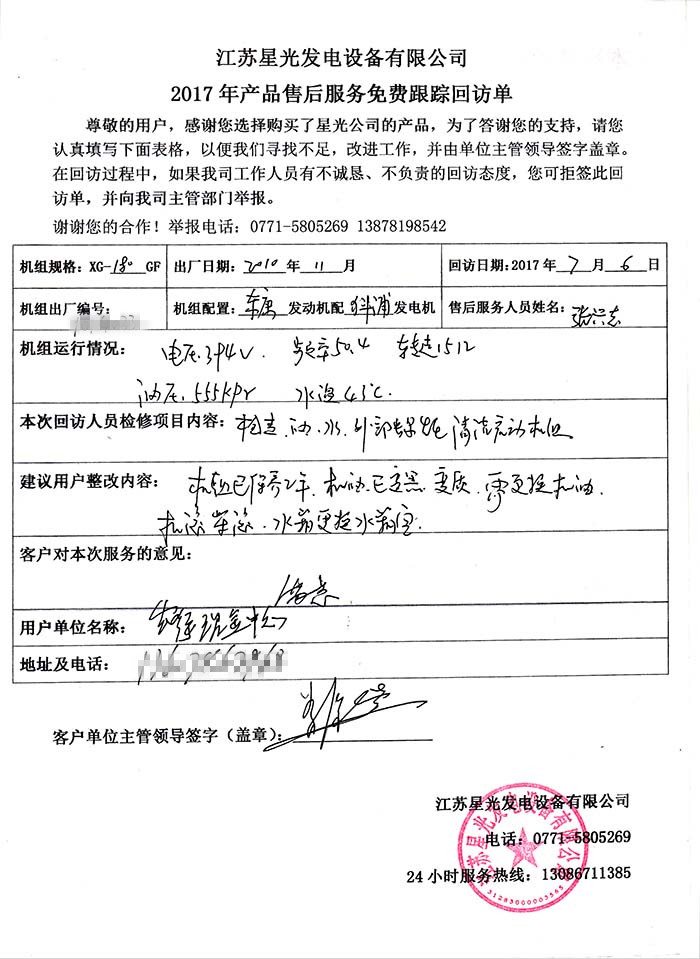 江苏星光发电设备有限公司
2017年产品售后服务免费跟踪回访单
尊敬的用户，感谢您选择购买了星光公司的产品，为了答谢您的支持，请您
认真填写下面表格，以便我们寻找不足，改进工作，并由单位主管领导签字盖章。
在回访过程中，如果我司工作人员有不诚恳、不负责的回访态度，您可拒签此回
访单，并向我司主管部门举报。
谢谢您的合作！举报电话：0771-5805269 13878198542
机组规格：XG-180 GF 出厂日期：2010 年 11 月 回访日期：2017 年 7 月 6 日
机组出厂编号： 机组配置：东康 发动机配 科浦 发电机 售后服务人员姓名：
机组运行情况： 电压394V. 频率50.4 转速1512
油压555kpr 水温43℃.
本次回访人员检修项目内容：检查.油.水.外部 清洁启动机组
建议用户整改内容： 机组已保养2年.机油已变黑.变质.需更换机油.
机滤.柴滤.水箱更换水箱宝.
客户对本次服务的意见：
满意
用户单位名称：
地址及电话：
客户单位主管领导签字（盖章）：
江苏星光发电设备有限公司
电话：0771-5805269
24小时服务热线：13086711385
江苏星光发电设备有限公司